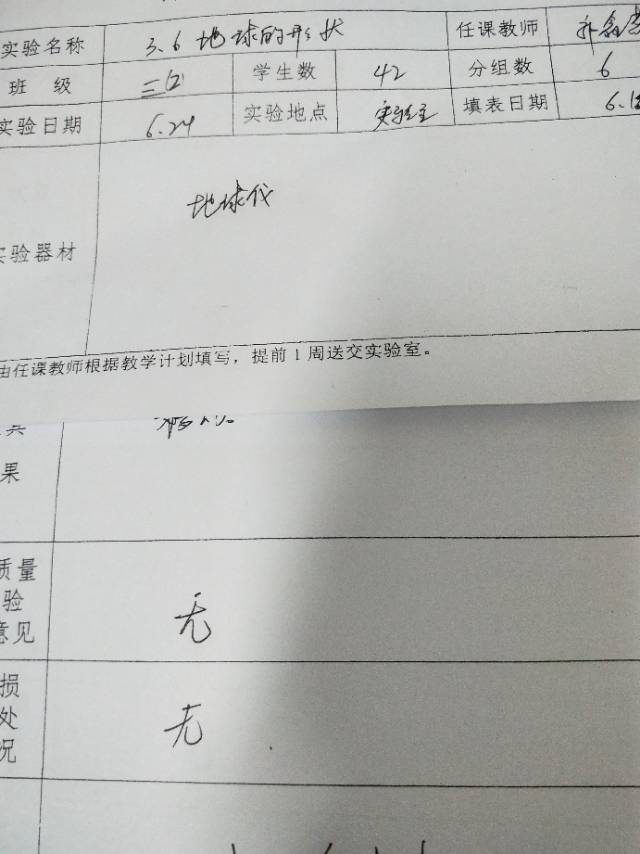 实验名称 3.6 地球的形状 任课教师
班 级 三(2) 学生数 42 分组数 6
实验日期 6.24 实验地点 实验室 填表日期 6.1
实验器材 地球仪
由任课教师根据教学计划填写，提前1周送交实验室。
果
质量
验
意见 无
损
处
况 无